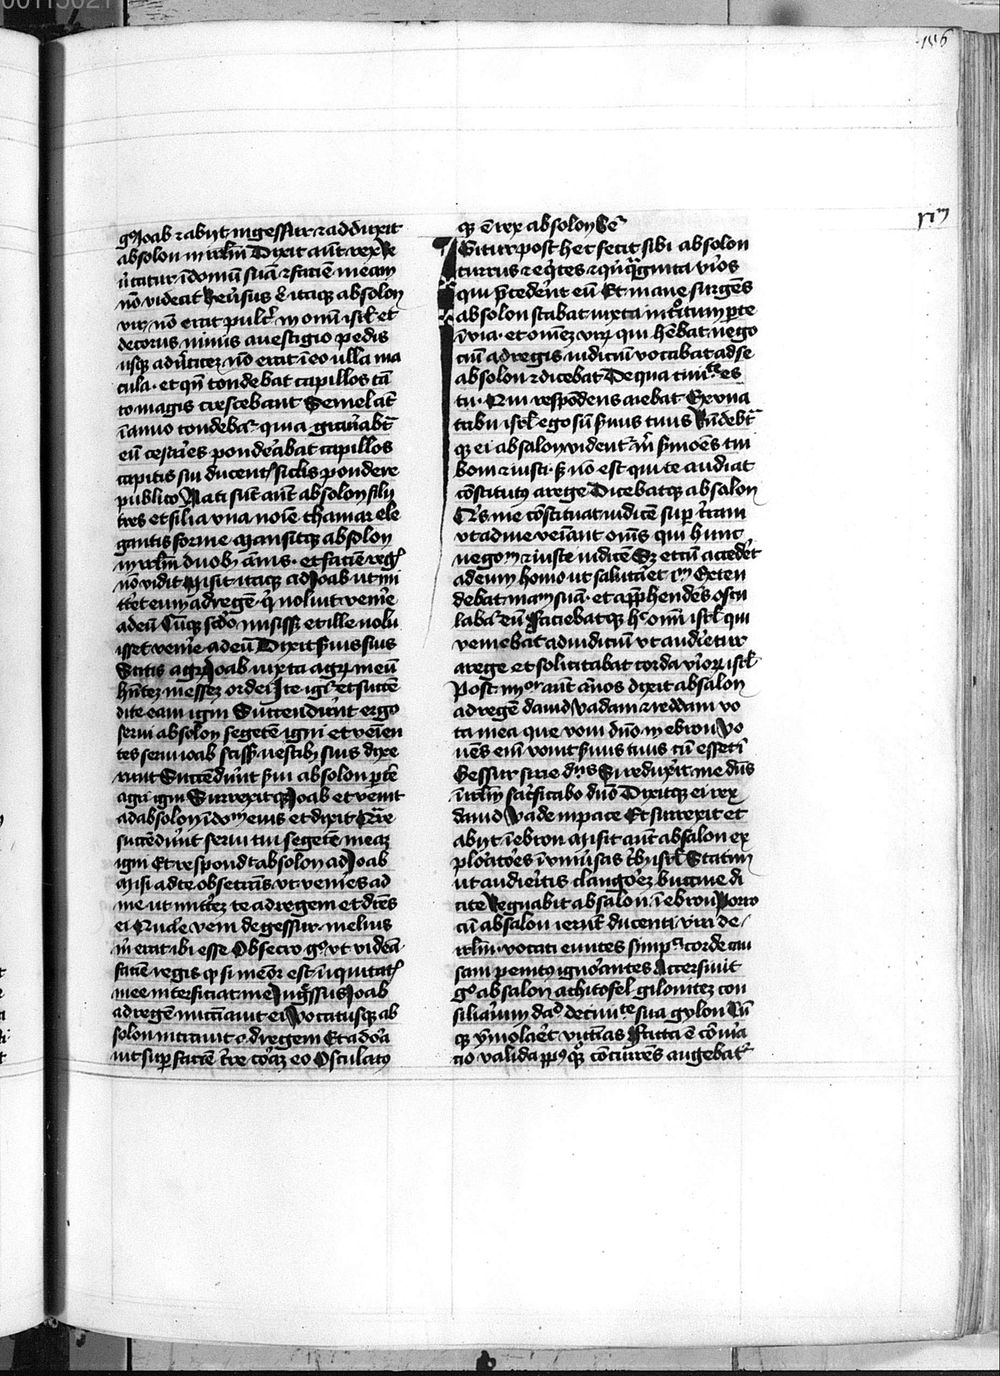 00113021
156
xvm
go Joab et abijt in gessur et adduxit
absolon in irlm Dixit aūt rex Re
ūtatur ī domū suā et faciē meam
nō videat Reūsus ē itaqȝ absolon
vir nō erat pulcr in omī isrl et
decorus nimis a vestigio pedis
usqȝ ad ūticeȝ nō erat ī eo ulla ma
cula · et qn̄ tondebat capillos tā
to magis crescebant Semel aūt
ī anno tondebat quia grauabāt
eū cesaries ponderabat capillos
capitis sui ducentis siclis pondere
publico Nati sūt aūt absolon filij
tres et filia vna noīe thamar ele
gantis forme Mansitqȝ absolon
in irlm duobȝ ānis · et faciē regis
nō vidit Misit itaqȝ ad Joab ut mi
tteret eum ad regē · qi noluit venire
ad eū Cūqȝ scdo misisset et ille nolu
isset venire ad eū Dixit seruis suis
Scitis agrū Joab iuxta agrū meū
hn̄teȝ messeȝ ordei Ite igr et succē
dite eam igni Succenderūt ergo
serui absolon segetē igni et veniēn
tes serui ioab scissis vestibȝ suis dixe
runt Succēderūt sui absolon ptē
agri igni Surrexitqȝ Joab et venit
ad absolon ī domū eius et dixit Qre
succēderūt serui tui segetē meaȝ
igni Et respondit absolon ad Joab
Misi ad te obsecrans vt venires ad
me ut mitteȝ te ad regem et dices
ei Quare veni de gessur · melius
m erat ibi esse Obsecro go vt videā
faciē regis qȝ si memor est īiquitatis
mee interficiat me Ingressus Joab
ad regē nūctiauit ei Vocatusqȝ ab
solon intrauit ad regem Et adora
uit super faciē tre coraȝ eo Osculatus
qȝ ē rex absolon bē
Igitur post hec fecit sibi absolon
currus et eqites et qūqginta viros
qui pcederēt eū Et mane surgēs
absolon stabat iuxta introitum porte
ī via · et omeȝ virū qui hēbat nego
ciū ad regis iudiciū vocabat ad se
absolon et dicebat De qua ciuitate es
tu · Qui respōdens aiebat Ex vna
tribu isrl ego sū seruus tuus Rn̄debat
qȝ ei absalon vident m smōes tui
boni et iusti · sed nō est qui te audiat
cōstitutus a rege Dicebatqȝ absalon
Qis me cōstituat iudicē super tram
vt ad me veniant omēs qui hūnt
negom et iuste iudicē Sȝ et cū accederet
ad eum homo ut salutaret im Exten
debat manū suā · et apphendēs oscu
labat eū Faciebatqȝ hoc omī isrl qui
veniebat ad iudiciū vt audiretur
a rege et sollicitabat corda viroȝ isrl
Post iiijor aūt ānos dixit absalon
ad regē dauid Vadam et reddam vo
ta mea que voui dno in ebron Vo
uēs eim vouit seruus tuus cū esset ī
Gessur sirie dns Si reduxerit me dns
ī irlm sacrificabo dno Dixitqȝ ei rex
dauid Vade in pace Et surrexit et
abijt ī ebron Misit aūt absalon ex
ploratores ī vniūsas tribȝ isrl Statim
ut audieritis clangoreȝ buccine di
cite Regnabit absalon · ī ebron Porro
cū absalon ierunt ducenti viri de
irlm · vocati euntes simplici corde cau
sam penitus ignorantes Accersiuit
go absalon achitofel giloniteȝ con
siliariū dauid de ciuitate sua gylon Cū
qȝ ymolaret victimas Facta ē cōiura
cio valida ppsqȝ cōcurrēs augebatur